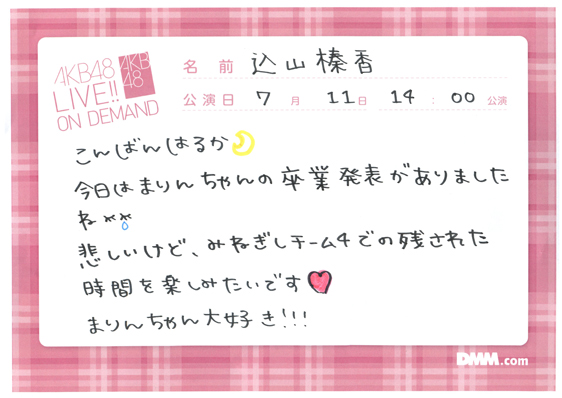 AKB48
LIVE!!
ON DEMAND
AKB
48
名 前 込山榛香
公演日 7 月 11 日 14 : 00 公演
こんばんはるか
今日はまりんちゃんの卒業発表がありました
ね
悲しいけど、みねぎしチーム4での残された
時間を楽しみたいです
まりんちゃん大好き!!!
DMM.com